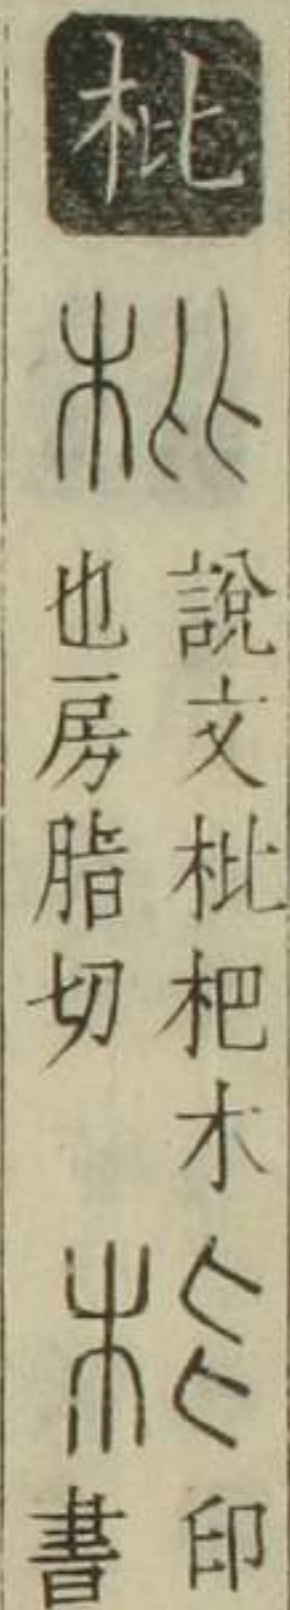 枇
枇
說文枇杷木
也房脂切
枇
印
書